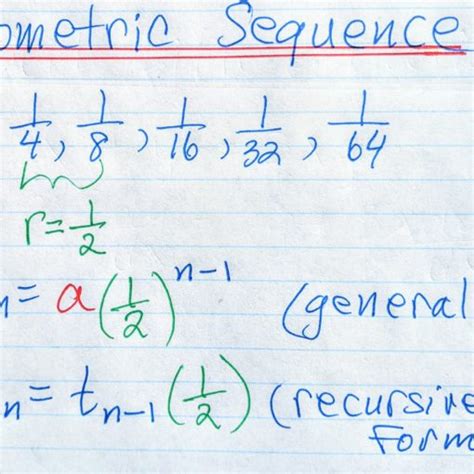 ometric Sequence
1/4, 1/8, 1/16, 1/32, 1/64
r=1/2
n= a(1/2)^n-1 (general
n= t_n-1(1/2) (recursive
Form